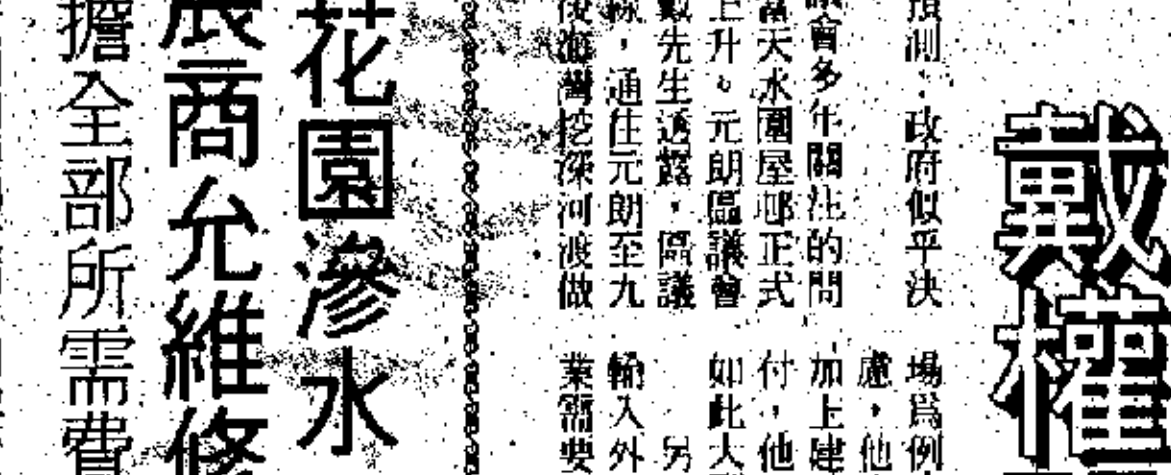 戴權
預測，政府似乎決
議會多年關注的問
當天水圍屋邨正式
上升。元朗區議會
戴先生透露，區議
線，通往元朗至九
後海灣挖深河渡做
場爲例
慮，他
加上建
付，他
如此大
另
輸入外
業需要
花園滲水
展商允維修
擔全部所需費